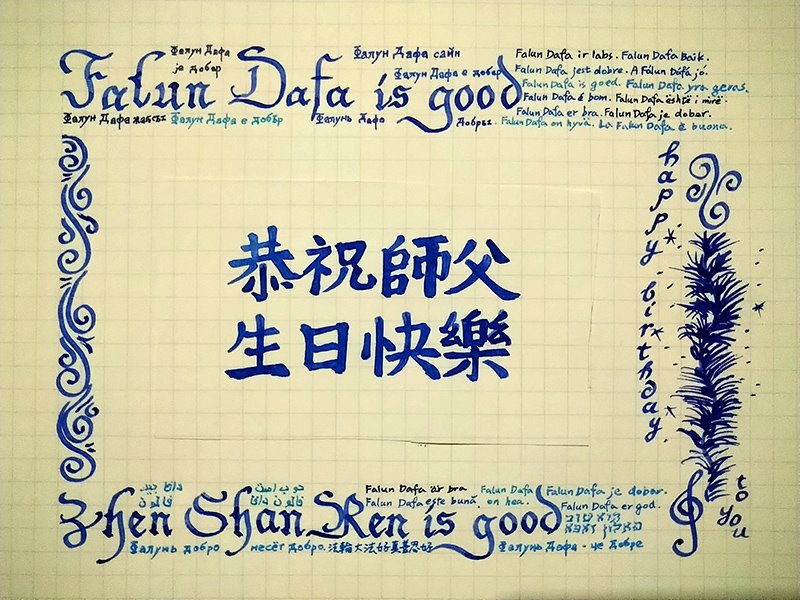 Фалун Дафа
је добар
Фалун Дафа сайн
Фалун Дафа е добар
Falun Dafa is good
Falun Dafa ir labs. Falun Dafa Baik.
Falun Dafa jest dobre. A Fálun Dáfá jó.
Falun Dafa is goed. Falun Dafa yra geras.
Falun Dafa é bom. Falun Dafa është i mirë.
Falun Dafa er bra. Falun Dafa je dobar.
Falun Dafa on hyvä. La Falun Dafa è buona.
Фалун Дафа жақсы
Фалун Дафа е добър
Фалунь Дафа
добры.
happy birthday
to you
恭祝師父
生日快樂
Falun Dafa är bra
Falun Dafa
Falun Dafa je dobar.
Falun Dafa este bună.
on hea.
Falun Dafa er god.
Zhen Shan Ren is good
Фалунь добро
несёт добро.
法輪大法好真善忍好
Фалунь Дафа - це добре